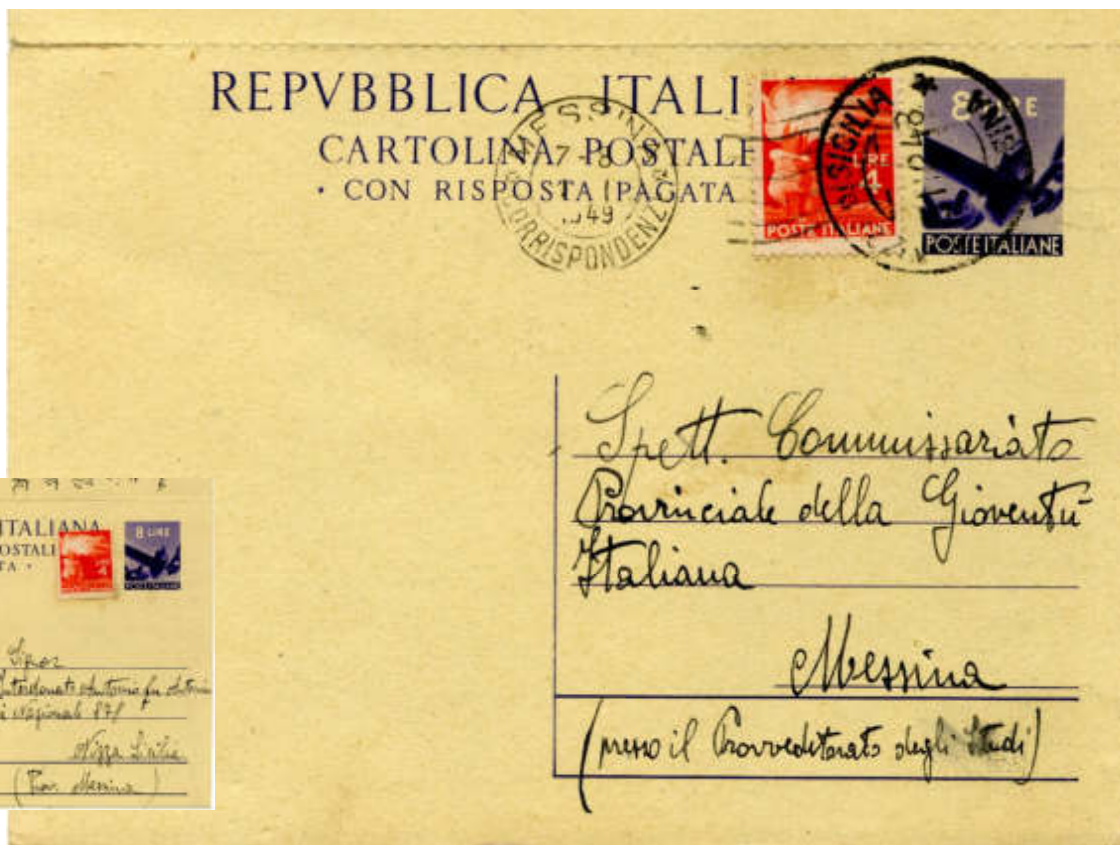 REPVBBLICA ITALI
CARTOLINA POSTALE
· CON RISPOSTA PAGATA
MESSINA
7-8
1949
CORRISPONDENZ
LIRE
4
POSTE ITALIANE
DI SICILIA
8 LIRE
POSTE ITALIANE
Spett. Commissariato
Provinciale della Gioventù
Italiana
Messina
(presso il Provveditorato degli Studi)
ITALIANA
POSTALE
TA ·
4
8 LIRE
POSTE ITALIANE
Signor
Interdonato Antonio fu Antonio
Nazionale 871
Nizza Sicilia
(Prov. Messina)